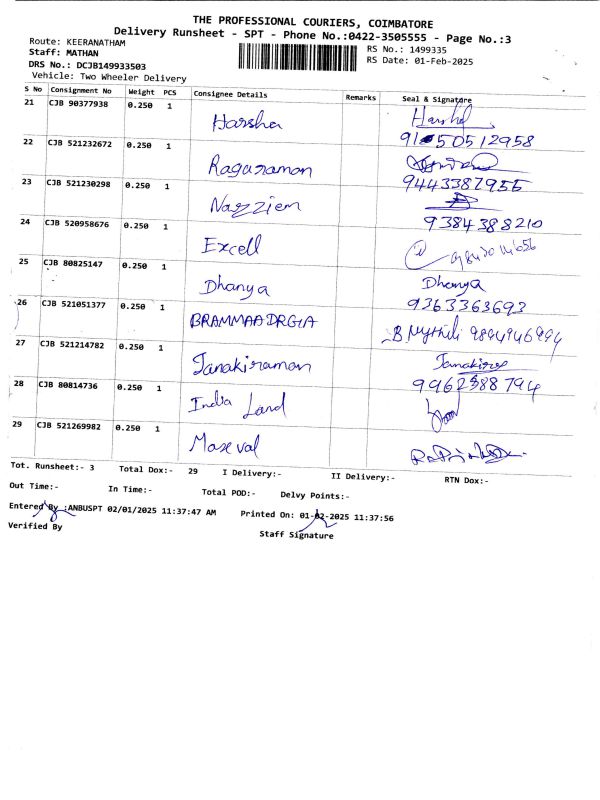 THE PROFESSIONAL COURIERS, COIMBATORE
Delivery Runsheet - SPT - Phone No.:0422-3505555 - Page No.:3
Route: KEERANATHAM RS No.: 1499335
Staff: MATHAN RS Date: 01-Feb-2025
DRS No.: DCJB149933503
Vehicle: Two Wheeler Delivery
S No Consignment No Weight PCS Consignee Details Remarks Seal & Signature
21 CJB 90377938 0.250 1 Harsha Harsha
22 CJB 521232672 0.250 1 Ragaramon
23 CJB 521230298 0.250 1 Nazziem 9443387955
24 CJB 520958676 0.250 1 Excell 9384388210
25 CJB 80825147 0.250 1 Dhanya Dhanya
9363363693
26 CJB 521051377 0.250 1 BRAMMAA DRGIA B Mythili 9894946994
27 CJB 521214782 0.250 1 Janakiraman
28 CJB 80814736 0.250 1 India Land 9962388794
29 CJB 521269982 0.250 1
Tot. Runsheet:- 3 Total Dox:- 29 I Delivery:- II Delivery:- RTN Dox:-
Out Time:- In Time:- Total POD:- Delvy Points:-
Entered By :ANBUSPT 02/01/2025 11:37:47 AM Printed On: 01-02-2025 11:37:56
Verified By Staff Signature